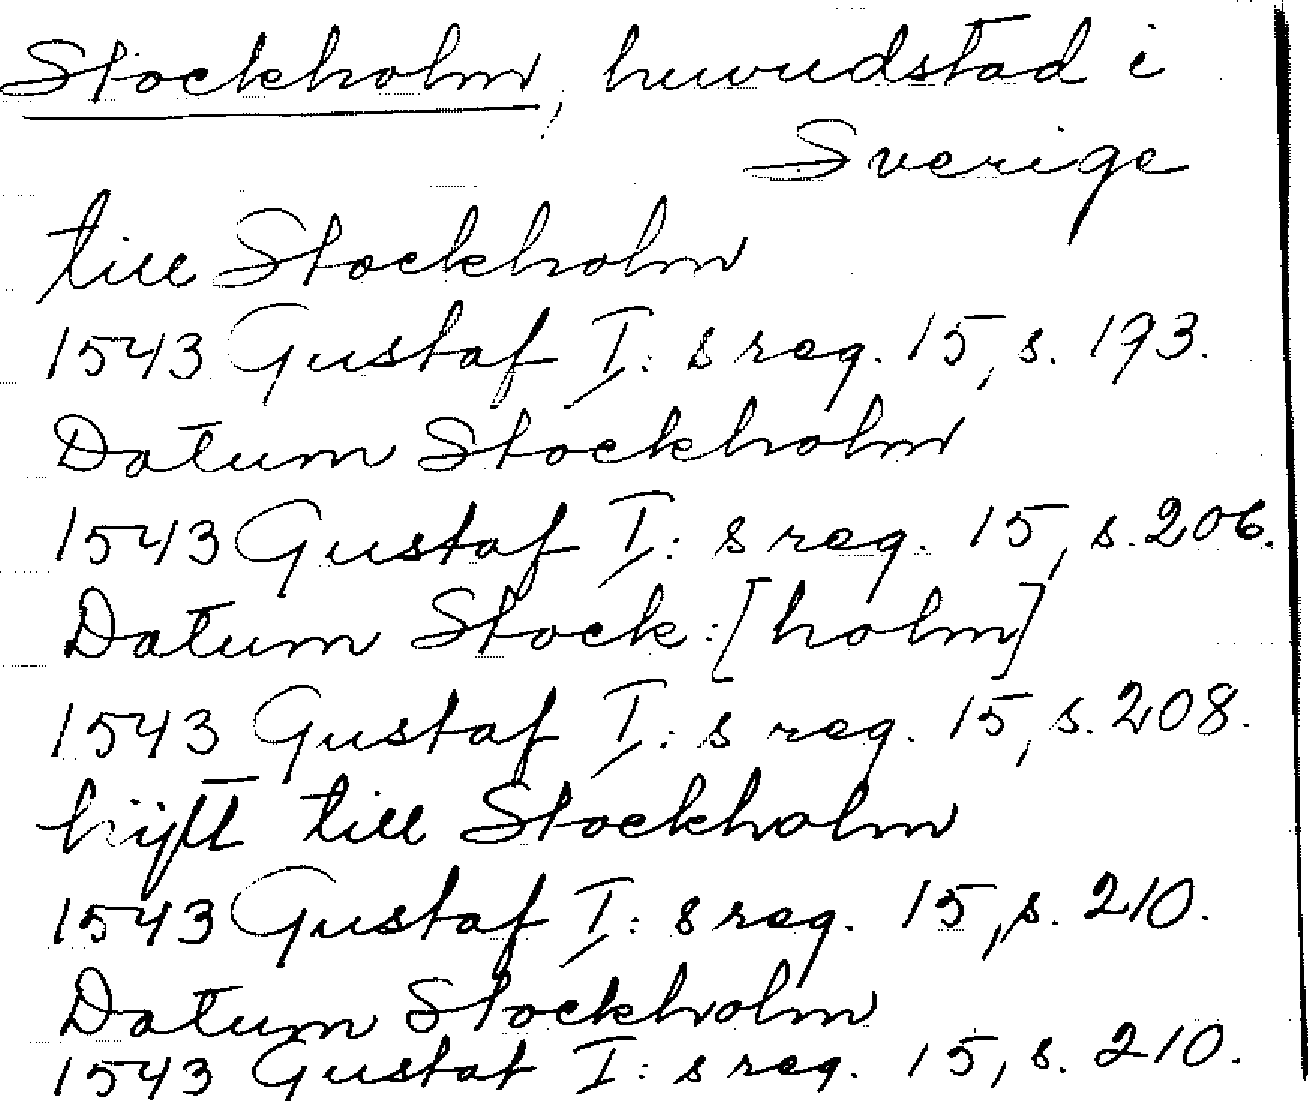 Stockholm, huvudstad i
Sverige
till Stockholm
1543 Gustaf I:s reg. 15, s. 193.
Datum Stockholm
1543 Gustaf I:s reg. 15, s. 206.
Datum Stock:[holm]
1543 Gustaf I:s reg. 15, s. 208.
till Stockholm
1543 Gustaf I:s reg. 15, s. 210.
Datum Stockholm
1543 Gustaf I:s reg. 15, s. 210.